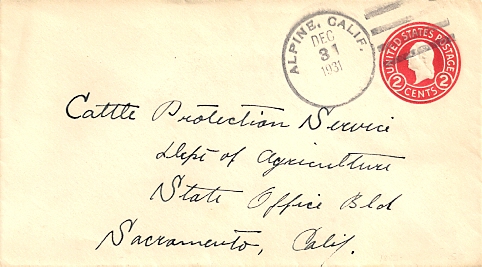 ALPINE, CALIF.
DEC
31
1931
UNITED STATES POSTAGE
2 CENTS 2
Cattle Protection Service
Dept of Agriculture
State Office Bld
Sacramento, Calif.